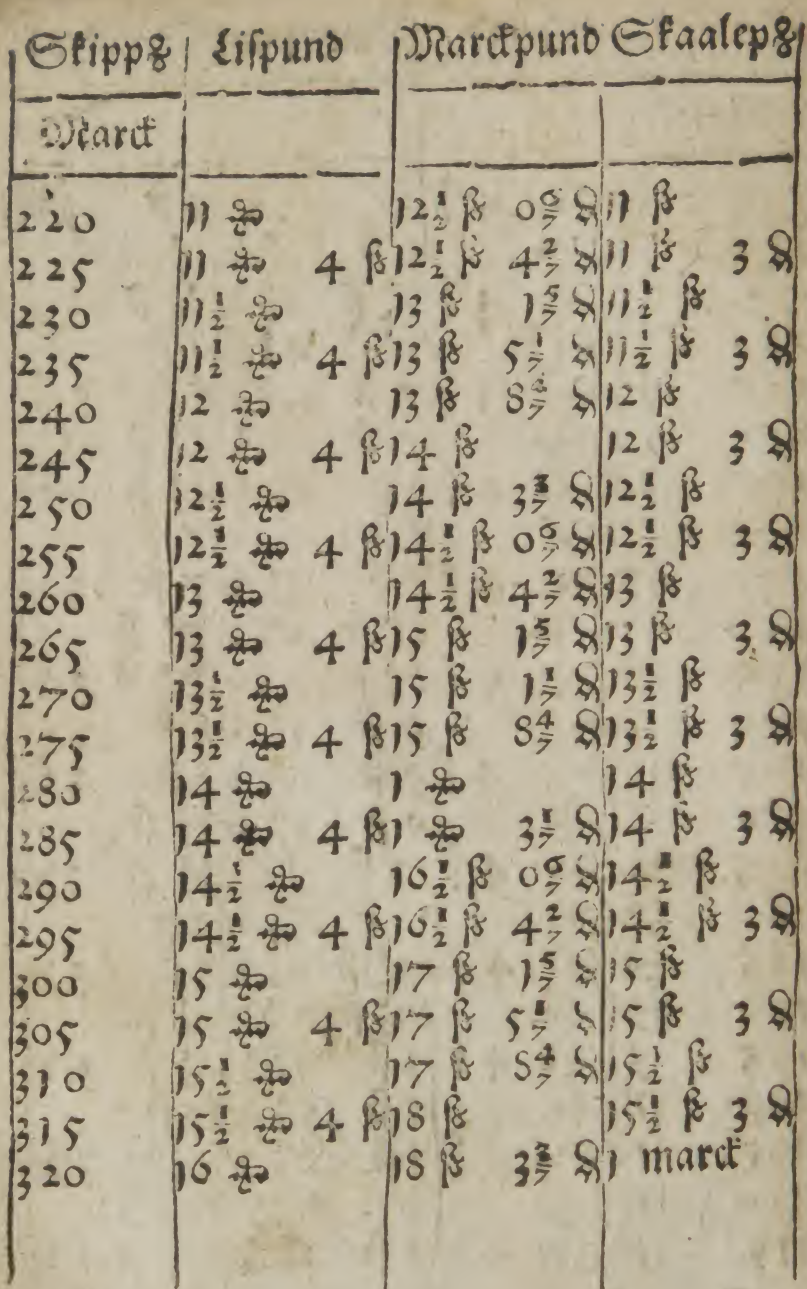 Skipp& Lispund Marckpund Skaalep&
Marck
220 11 & 12½ ß 0 6/7 ₰ 11 ß
225 11 & 4 ß 12½ ß 4 2/7 ₰ 11 ß 3 ₰
230 11½ & 13 ß 1 5/7 ₰ 11½ ß
235 11½ & 4 ß 13 ß 5 1/7 ₰ 11½ ß 3 ₰
240 12 & 13 ß 8 4/7 ₰ 12 ß
245 12 & 4 ß 14 ß 12 ß 3 ₰
250 12½ & 14 ß 3 3/7 ₰ 12½ ß
255 12½ & 4 ß 14½ ß 0 6/7 ₰ 12½ ß 3 ₰
260 13 & 14½ ß 4 2/7 ₰ 13 ß
265 13 & 4 ß 15 ß 1 5/7 ₰ 13 ß 3 ₰
270 13½ & 15 ß 1 1/7 ₰ 13½ ß
275 13½ & 4 ß 15 ß 8 4/7 ₰ 13½ ß 3 ₰
280 14 & 1 & 14 ß
285 14 & 4 ß 1 & 3 1/7 ₰ 14 ß 3 ₰
290 14½ & 16½ ß 0 6/7 ₰ 14½ ß
295 14½ & 4 ß 16½ ß 4 2/7 ₰ 14½ ß 3 ₰
300 15 & 17 ß 1 5/7 ₰ 15 ß
305 15 & 4 ß 17 ß 5 1/7 ₰ 15 ß 3 ₰
310 15½ & 17 ß 8 4/7 ₰ 15½ ß
315 15½ & 4 ß 18 ß 15½ ß 3 ₰
320 16 & 18 ß 3 3/7 ₰ 1 marck